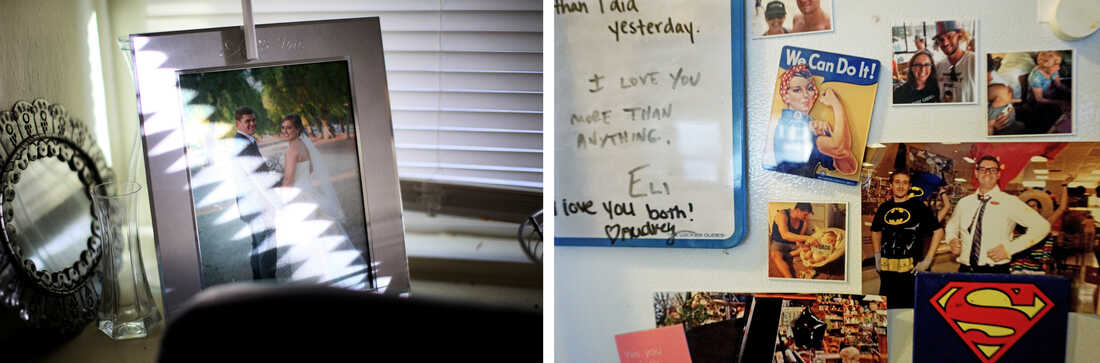 than I did
yesterday.
I LOVE YOU
MORE THAN
ANYTHING.
ELI
I love you both!
♡Audrey
We Can Do It!
S